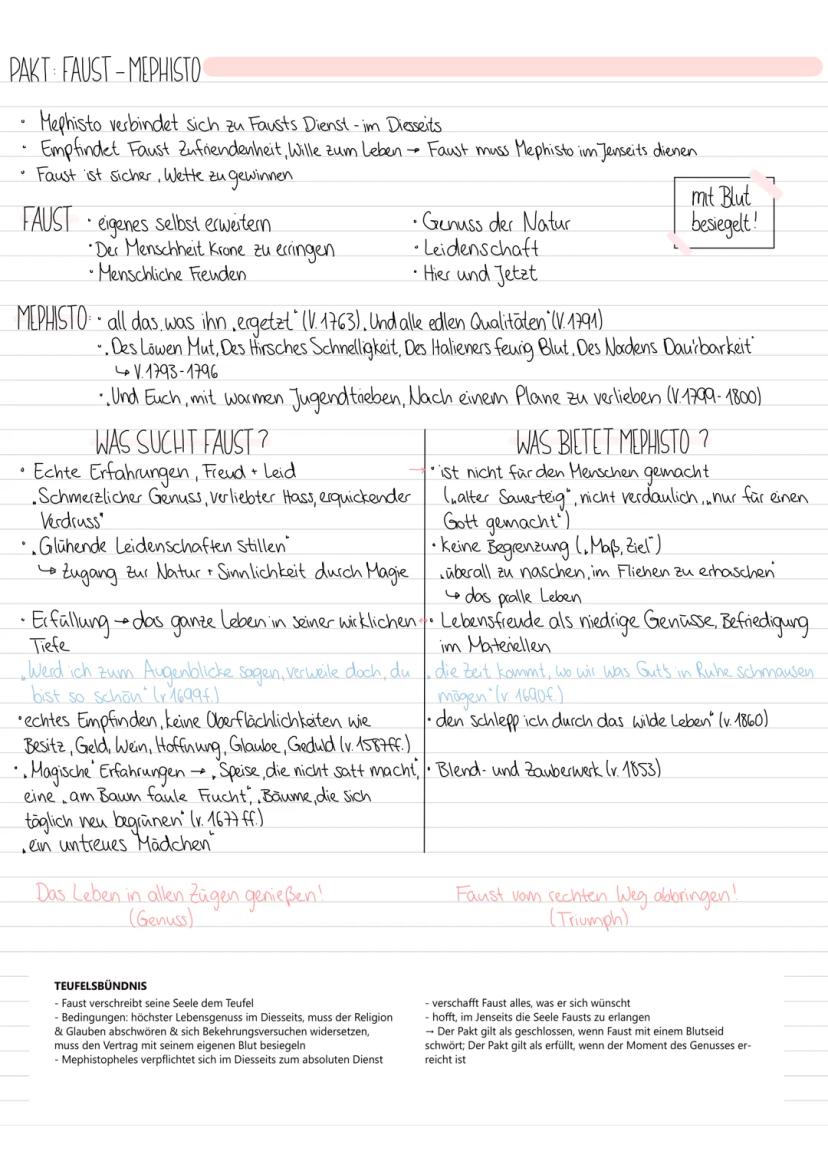 PAKT: FAUST – MEPHISTO
• Mephisto verbindet sich zu Fausts Dienst - im Diesseits
• Empfindet Faust Zufriendenheit, Wille zum Leben → Faust muss Mephisto im Jenseits dienen
• Faust ist sicher, Wette zu gewinnen
mit Blut
besiegelt!
FAUST • eigenes selbst erweitern
• Der Menschheit Krone zu erringen
• Menschliche Freuden
• Genuss der Natur
• Leidenschaft
• Hier und Jetzt
MEPHISTO: • all das, was ihn „ergetzt" (V. 1763), Und alle edlen Qualitäten" (V. 1791)
• „Des Löwen Mut, Des Hirsches Schnelligkeit, Des Italieners feurig Blut, Des Nordens Dau'rbarkeit"
↳ V. 1793-1796
• „Und Euch, mit warmen Jugendtrieben, Nach einem Plane zu verlieben (V. 1799-1800)
WAS SUCHT FAUST?
• Echte Erfahrungen, Freud + Leid
„Schmerzlicher Genuss, verliebter Hass, erquickender
Verdruss"
• „Glühende Leidenschaften stillen"
↳ Zugang zur Natur + Sinnlichkeit durch Magie
• Erfüllung → das ganze Leben in seiner wirklichen
Tiefe
„Werd ich zum Augenblicke sagen, verweile doch, du
bist so schön" (v 1699f.)
• echtes Empfinden, keine Oberflächlichkeiten wie
Besitz, Geld, Wein, Hoffnung, Glaube, Geduld (v. 1587ff.)
• „Magische" Erfahrungen → „Speise, die nicht satt macht",
eine „am Baum faule Frucht", „Bäume, die sich
täglich neu begrünen" (v. 1677 ff.)
„ein untreues Mädchen"
Das Leben in allen Zügen genießen!
(Genuss)
WAS BIETET MEPHISTO ?
→ • ist nicht für den Menschen gemacht
(„alter Sauerteig", nicht verdaulich, „nur für einen
Gott gemacht")
• keine Begrenzung („Maß, Ziel")
„überall zu naschen, im Fliehen zu erhaschen"
↳ das pralle Leben
• Lebensfreude als niedrige Genüsse, Befriedigung
im Materiellen
„die Zeit kommt, wo wir was Guts in Ruhe schmausen
mögen" (v. 1690f.)
• den schlepp ich durch das wilde Leben" (v. 1860)
• Blend- und Zauberwerk (v. 1853)
Faust vom rechten Weg abbringen!
(Triumph)
TEUFELSBÜNDNIS
- Faust verschreibt seine Seele dem Teufel
- Bedingungen: höchster Lebensgenuss im Diesseits, muss der Religion
& Glauben abschwören & sich Bekehrungsversuchen widersetzen,
muss den Vertrag mit seinem eigenen Blut besiegeln
- Mephistopheles verpflichtet sich im Diesseits zum absoluten Dienst
- verschafft Faust alles, was er sich wünscht
- hofft, im Jenseits die Seele Fausts zu erlangen
→ Der Pakt gilt als geschlossen, wenn Faust mit einem Blutseid
schwört; Der Pakt gilt als erfüllt, wenn der Moment des Genusses er-
reicht ist